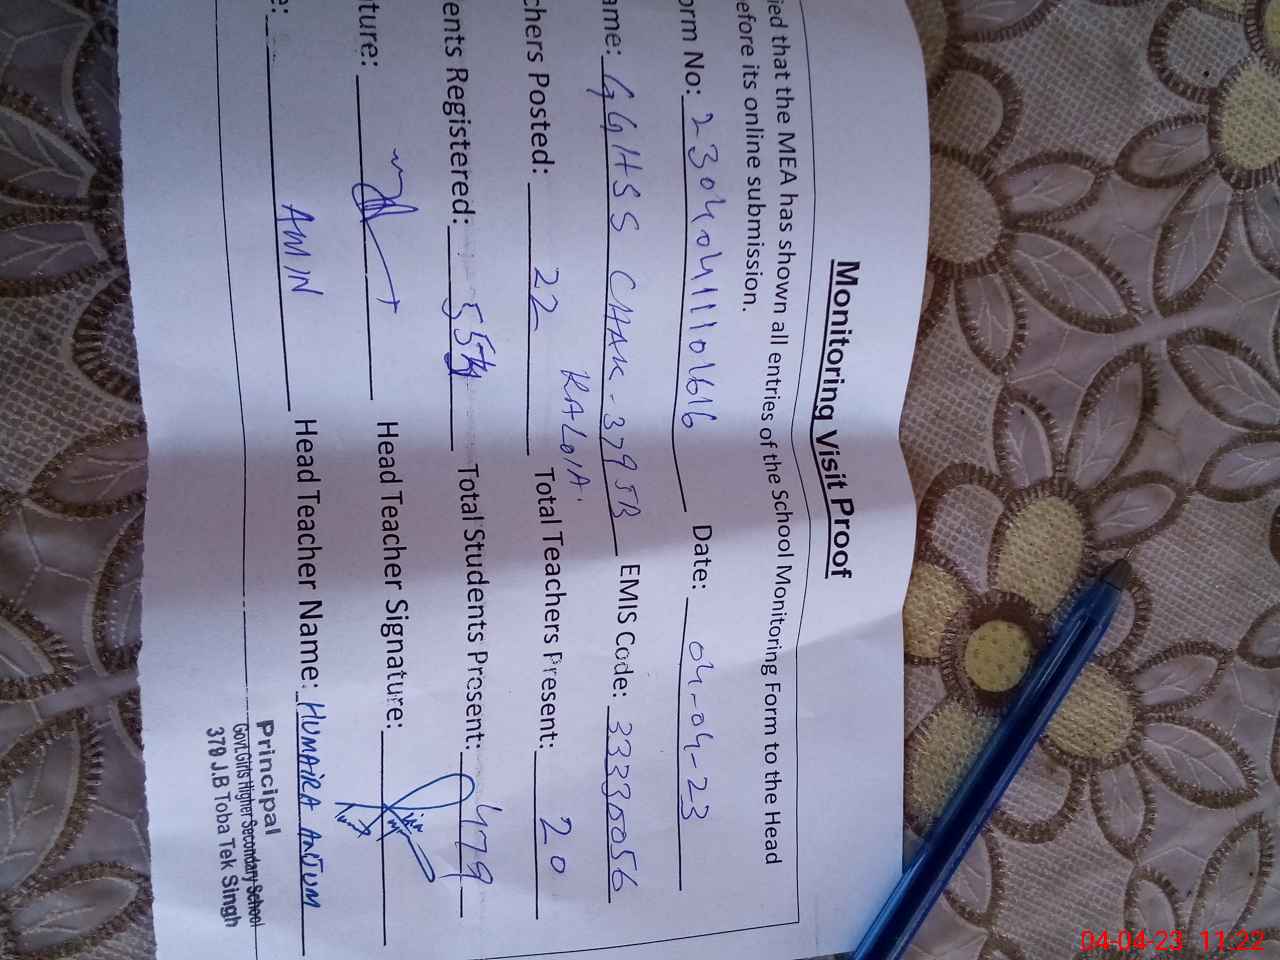 Monitoring Visit Proof
ied that the MEA has shown all entries of the School Monitoring Form to the Head
efore its online submission.
orm No: 230404111101616 Date: 04-04-23
ame: GGHSS CHAK-379 JB EMIS Code: 33330056
KALOIA.
chers Posted: 22 Total Teachers Present: 20
ents Registered: Total Students Present: 479
ture: Head Teacher Signature:
e: AMIN Head Teacher Name: HUMAIRA ANJUM
Principal
Govt.Girls Higher Secondary School
379 J.B Toba Tek Singh
04-04-23 11:22